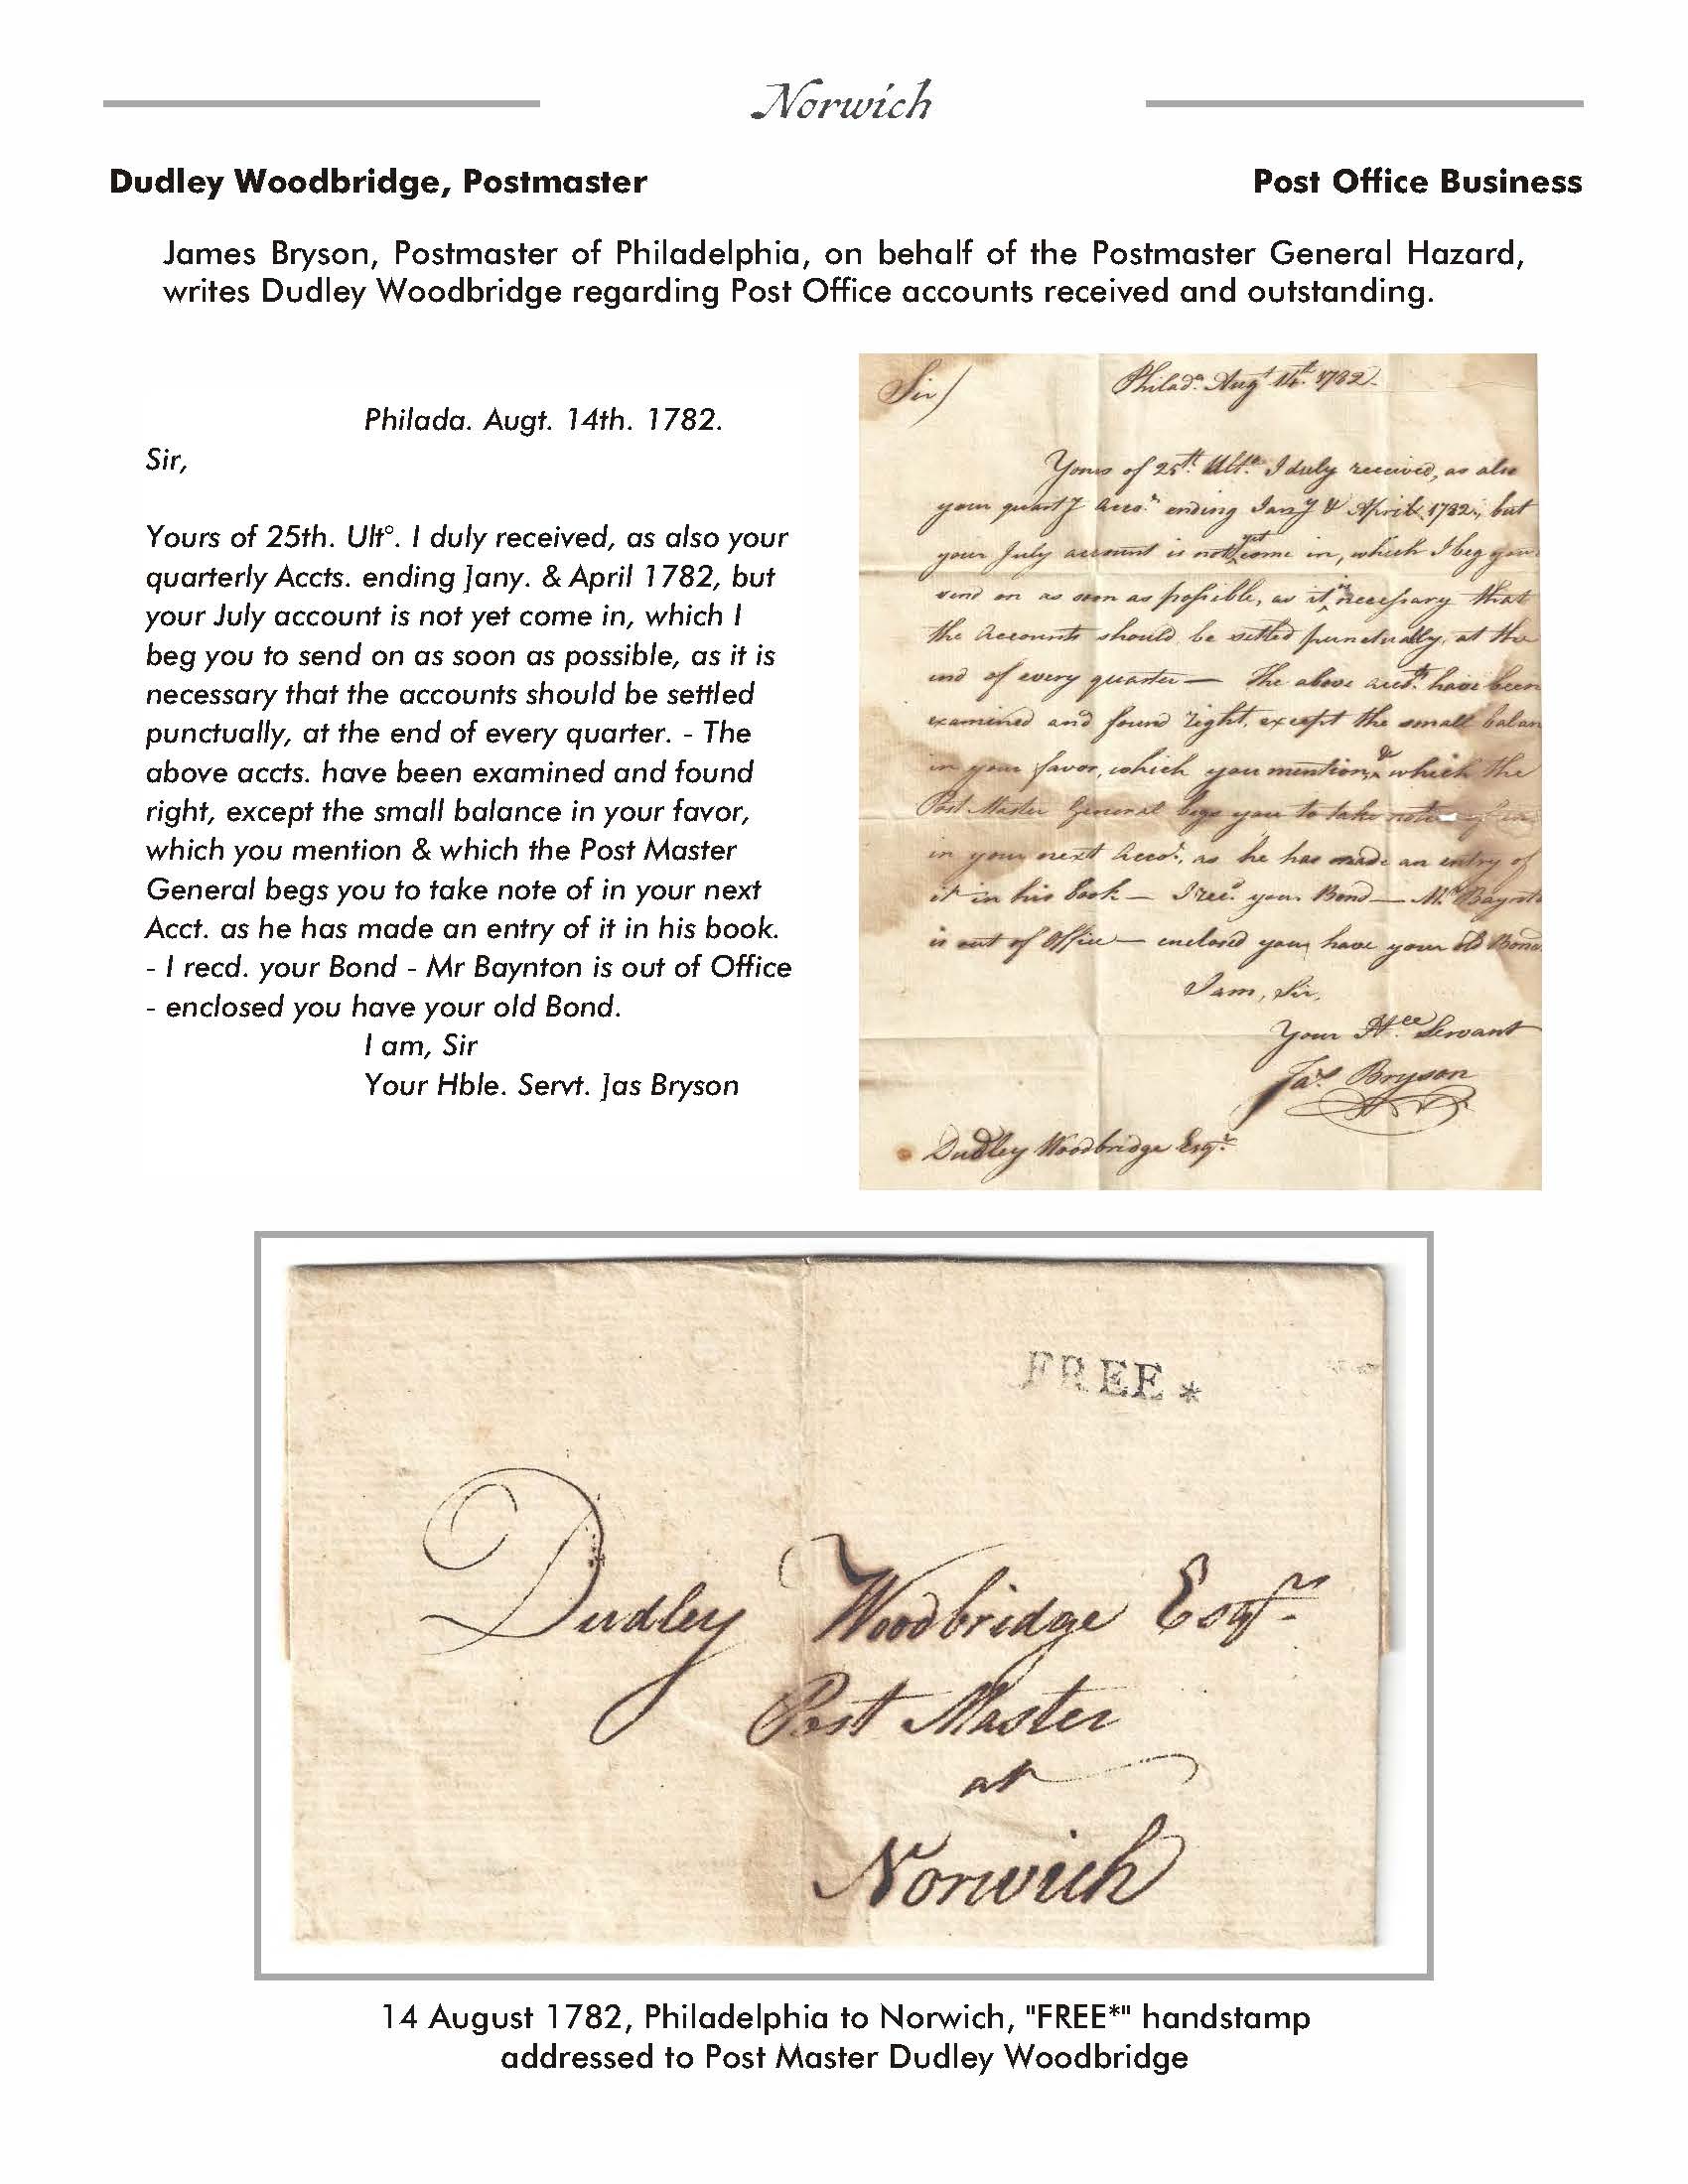 Norwich
Dudley Woodbridge, Postmaster
Post Office Business
James Bryson, Postmaster of Philadelphia, on behalf of the Postmaster General Hazard,
writes Dudley Woodbridge regarding Post Office accounts received and outstanding.
Philada. Augt. 14th. 1782.
Sir,
Yours of 25th. Ult°. I duly received, as also your
quarterly Accts. ending Jany. & April 1782, but
your July account is not yet come in, which I
beg you to send on as soon as possible, as it is
necessary that the accounts should be settled
punctually, at the end of every quarter. - The
above accts. have been examined and found
right, except the small balance in your favor,
which you mention & which the Post Master
General begs you to take note of in your next
Acct. as he has made an entry of it in his book.
- I recd. your Bond - Mr Baynton is out of Office
- enclosed you have your old Bond.
I am, Sir
Your Hble. Servt. Jas Bryson
Sir) Philada. Augt. 14th. 1782.
Yours of 25th. Ulto. I duly received, as also
your quartly Accots. ending Jany & April 1782, but
your July account is not yet come in, which I beg you
send on as soon as possible, as it is necessary that
the Accounts should be settled punctually, at the
end of every quarter — The above accts. have been
examined and found right, except the small balan
in your favor, which you mention, & which the
Post Master General begs you to take note of
in your next Accot. as he has made an entry of
it in his book — I recd. your Bond — Mr. Baynto
is out of Office — enclosed you have your old Bond
I am, Sir,
Your Hble Servant
Jas. Bryson
Dudley Woodbridge Esqr.
FREE*
Dudley Woodbridge Esqr.
Post Master
at
Norwich
14 August 1782, Philadelphia to Norwich, "FREE*" handstamp
addressed to Post Master Dudley Woodbridge